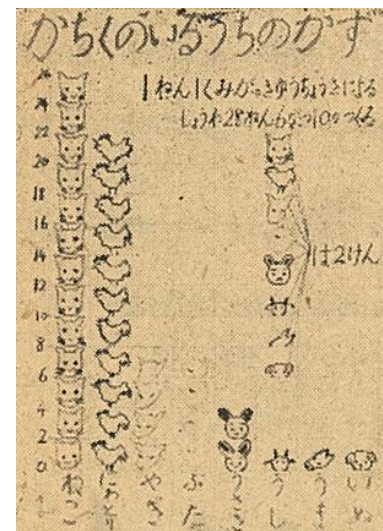 かちくのいるうちのかず
1ねん1くみがっきゅうちょうさによる
しょうわ28ねん6がつ10かつくる
は2けん
26
24
22
20
18
16
14
12
10
8
6
4
2
0
ねこ
にわとり
やぎ
ぶた
うさぎ
うし
うま
いぬ